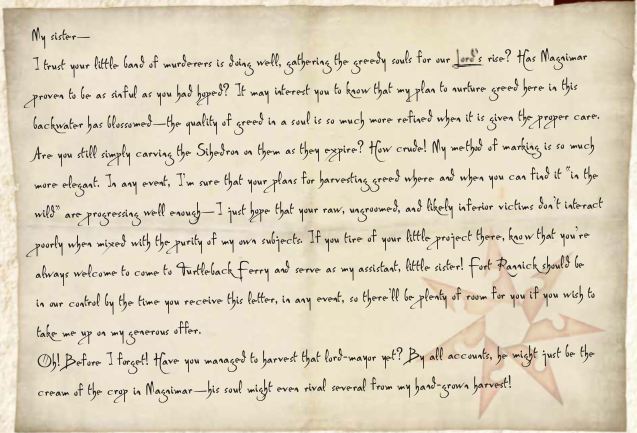 My sister—
I trust your little band of murderers is doing well, gathering the greedy souls for our Lord's rise? Has Magnimar
proven to be as sinful as you had hoped? It may interest you to know that my plan to nurture greed here in this
backwater has blossomed—the quality of greed in a soul is so much more refined when it is given the proper care.
Are you still simply carving the Sihedron on them as they expire? How crude! My method of marking is so much
more elegant. In any event, I'm sure that your plans for harvesting greed where and when you can find it "in the
wild" are progressing well enough—I just hope that your raw, ungroomed, and likely inferior victims don't interact
poorly when mixed with the purity of my own subjects. If you tire of your little project there, know that you're
always welcome to come to Turtleback Ferry and serve as my assistant, little sister! Fort Rannick should be
in our control by the time you receive this letter, in any event, so there'll be plenty of room for you if you wish to
take me up on my generous offer.
Oh! Before I forget! Have you managed to harvest that lord-mayor yet? By all accounts, he might just be the
cream of the crop in Magnimar—his soul might even rival several from my hand-grown harvest!